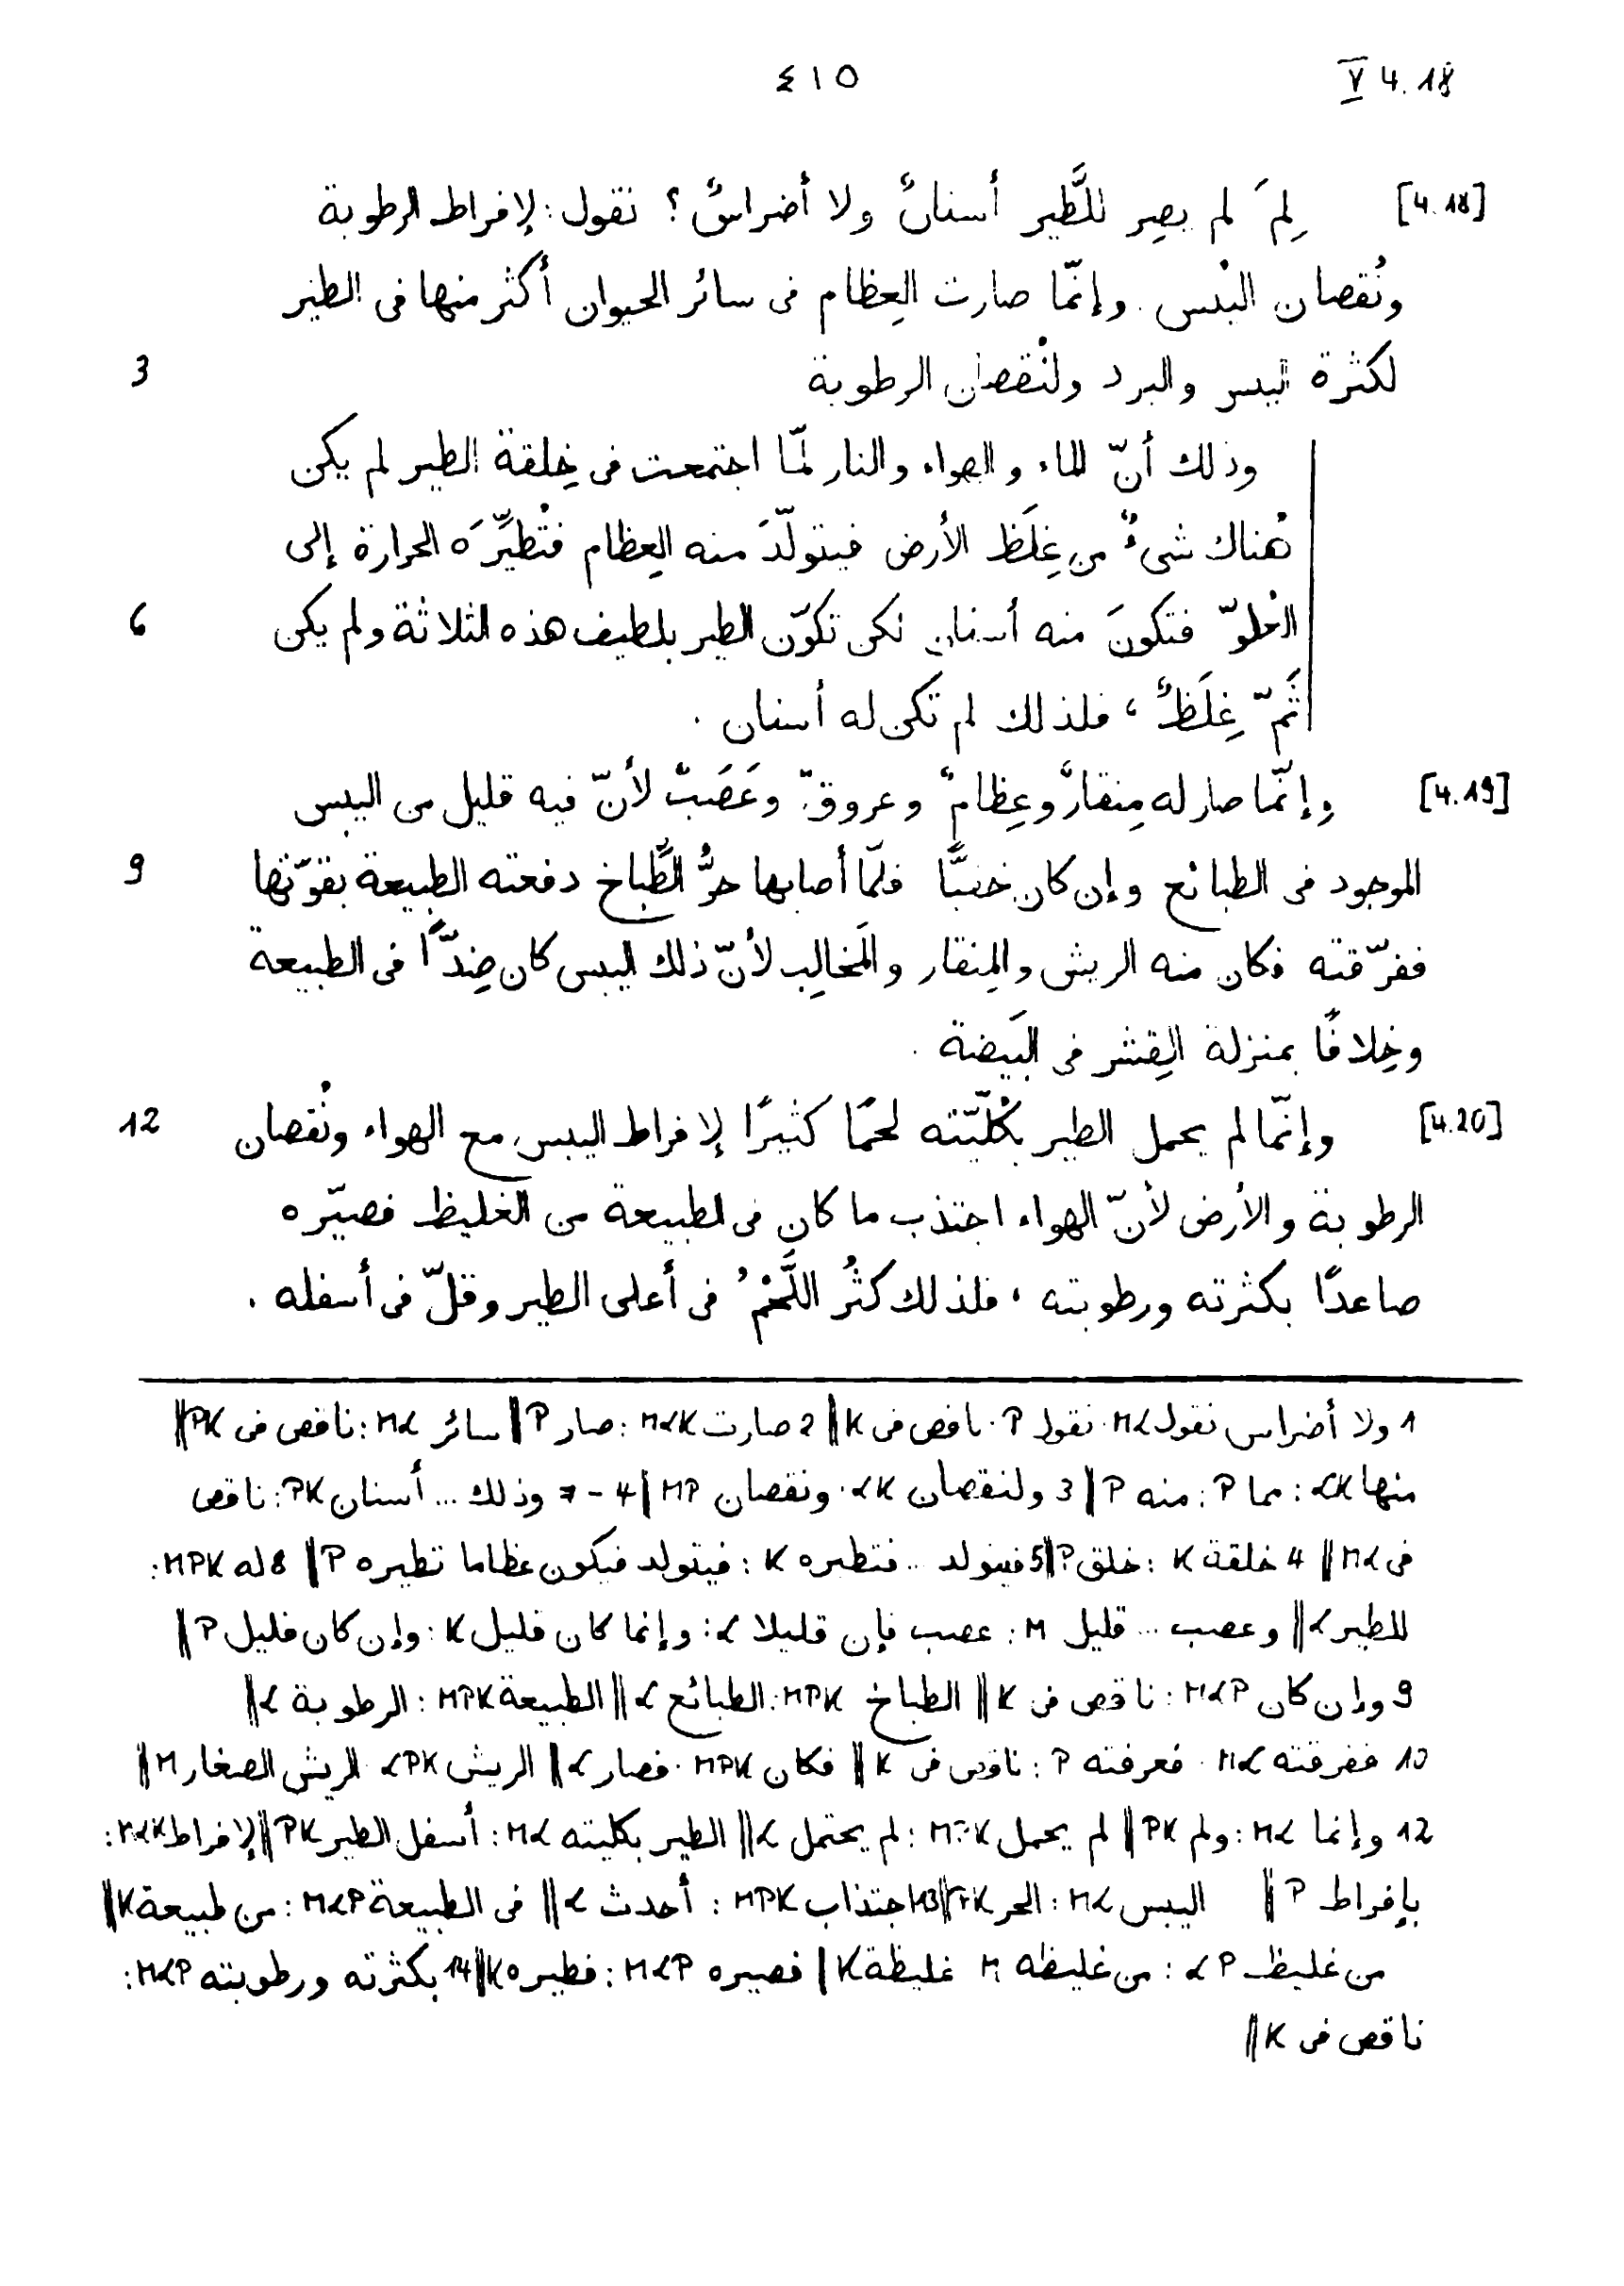 ٤١٥ V 4.18
[4.18] لِمَ لم يصِر للطَّير أسنانٌ ولا أضراسٌ؟ نقول: لإفراط الرطوبة
ونُقصان اليُبس. وإنّما صارت العِظام فى سائر الحيوان أكثر منها فى الطير
لكثرة اليبس والبرد ولنُقصان الرطوبة 3
وذلك أنّ الماء والهواء والنار لمّا اجتمعت فى خِلقة الطير لم يكن
هُناك شىءٌ من غِلَظ الأرض فيتولّدَ منه العِظام فتُطيِّرَه الحرارة إلى
العُلوّ فتكونَ منه أسنان لكن تكوّن الطير بلطيف هذه الثلاثة ولم يكن 6
ثَمّ غِلَظٌ، فلذلك لم تكن له أسنان.
[4.19] وإنّما صار له مِنقارٌ وعِظامٌ وعروقٌ وعَصَبٌ لأنّ فيه قليل من اليبس
الموجود فى الطبائع وإن كان خفيًّا فلمّا أصابها حرُّ الطَّبّاخ دفعته الطبيعة بقوّتها 9
ففرّقته فكان منه الريش والمِنقار والمَخالِب لأنّ ذلك اليبس كان ضِدًّا فى الطبيعة
وخِلافًا بمنزلة القِشر فى البَيضة.
[4.20] وإنّما لم يحمل الطير بكُلّيّته لحمًا كثيرًا لإفراط اليبس مع الهواء ونُقصان 12
الرطوبة والأرض لأنّ الهواء اجتذب ما كان فى الطبيعة من الغليظ فصيّره
صاعدًا بكثرته ورطوبته، فلذلك كثُر اللَّحْمُ فى أعلى الطير وقلّ فى أسفله.
1 ولا أضراس نقول Mα: نقول P: ناقص فى K || 2 صارت MαK: صار P || سائر Mα: ناقص فى PK ||
منها αK: مما P: منه P || 3 ولنقصان αK: ونقصان MP || 4 – 7 وذلك ... أسنان PK: ناقص
فى Mα || 4 خلقة K: خلق P || 5 فيتولد ... فتطيره K: فيتولد فيكون عظاما تطيره P || 8 له MPK:
للطير α || وعصب ... قليل M: عصب فإن قليلا α: وإنما كان قليل K: وإن كان قليل P ||
9 وإن كان MαP: ناقص فى K || الطباخ MPK: الطبائع α || الطبيعة MPK: الرطوبة α ||
10 ففرقته Mα: فعرفته P: ناقص فى K || فكان MPK: فصار α || الريش αPK: الريش الصغار M ||
12 وإنما Mα: ولم PK || لم يحمل MPK: لم يحتمل α || الطير بكليته Mα: أسفل الطير PK || لإفراط MαK:
بإفراط P || اليبس Mα: الحر PK || 13 اجتذاب MPK: أحدث α || فى الطبيعة MαP: من طبيعة K ||
من غليظ αP: من غليظه M غليظة K || فصيره MαP: فطيره K || 14 بكثرته ورطوبته MαP:
ناقص فى K ||